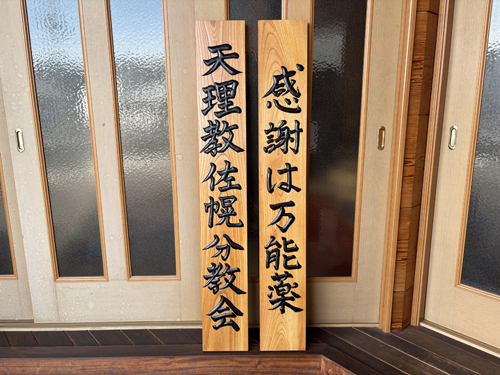 感謝は万能薬
天理教佐幌分教会